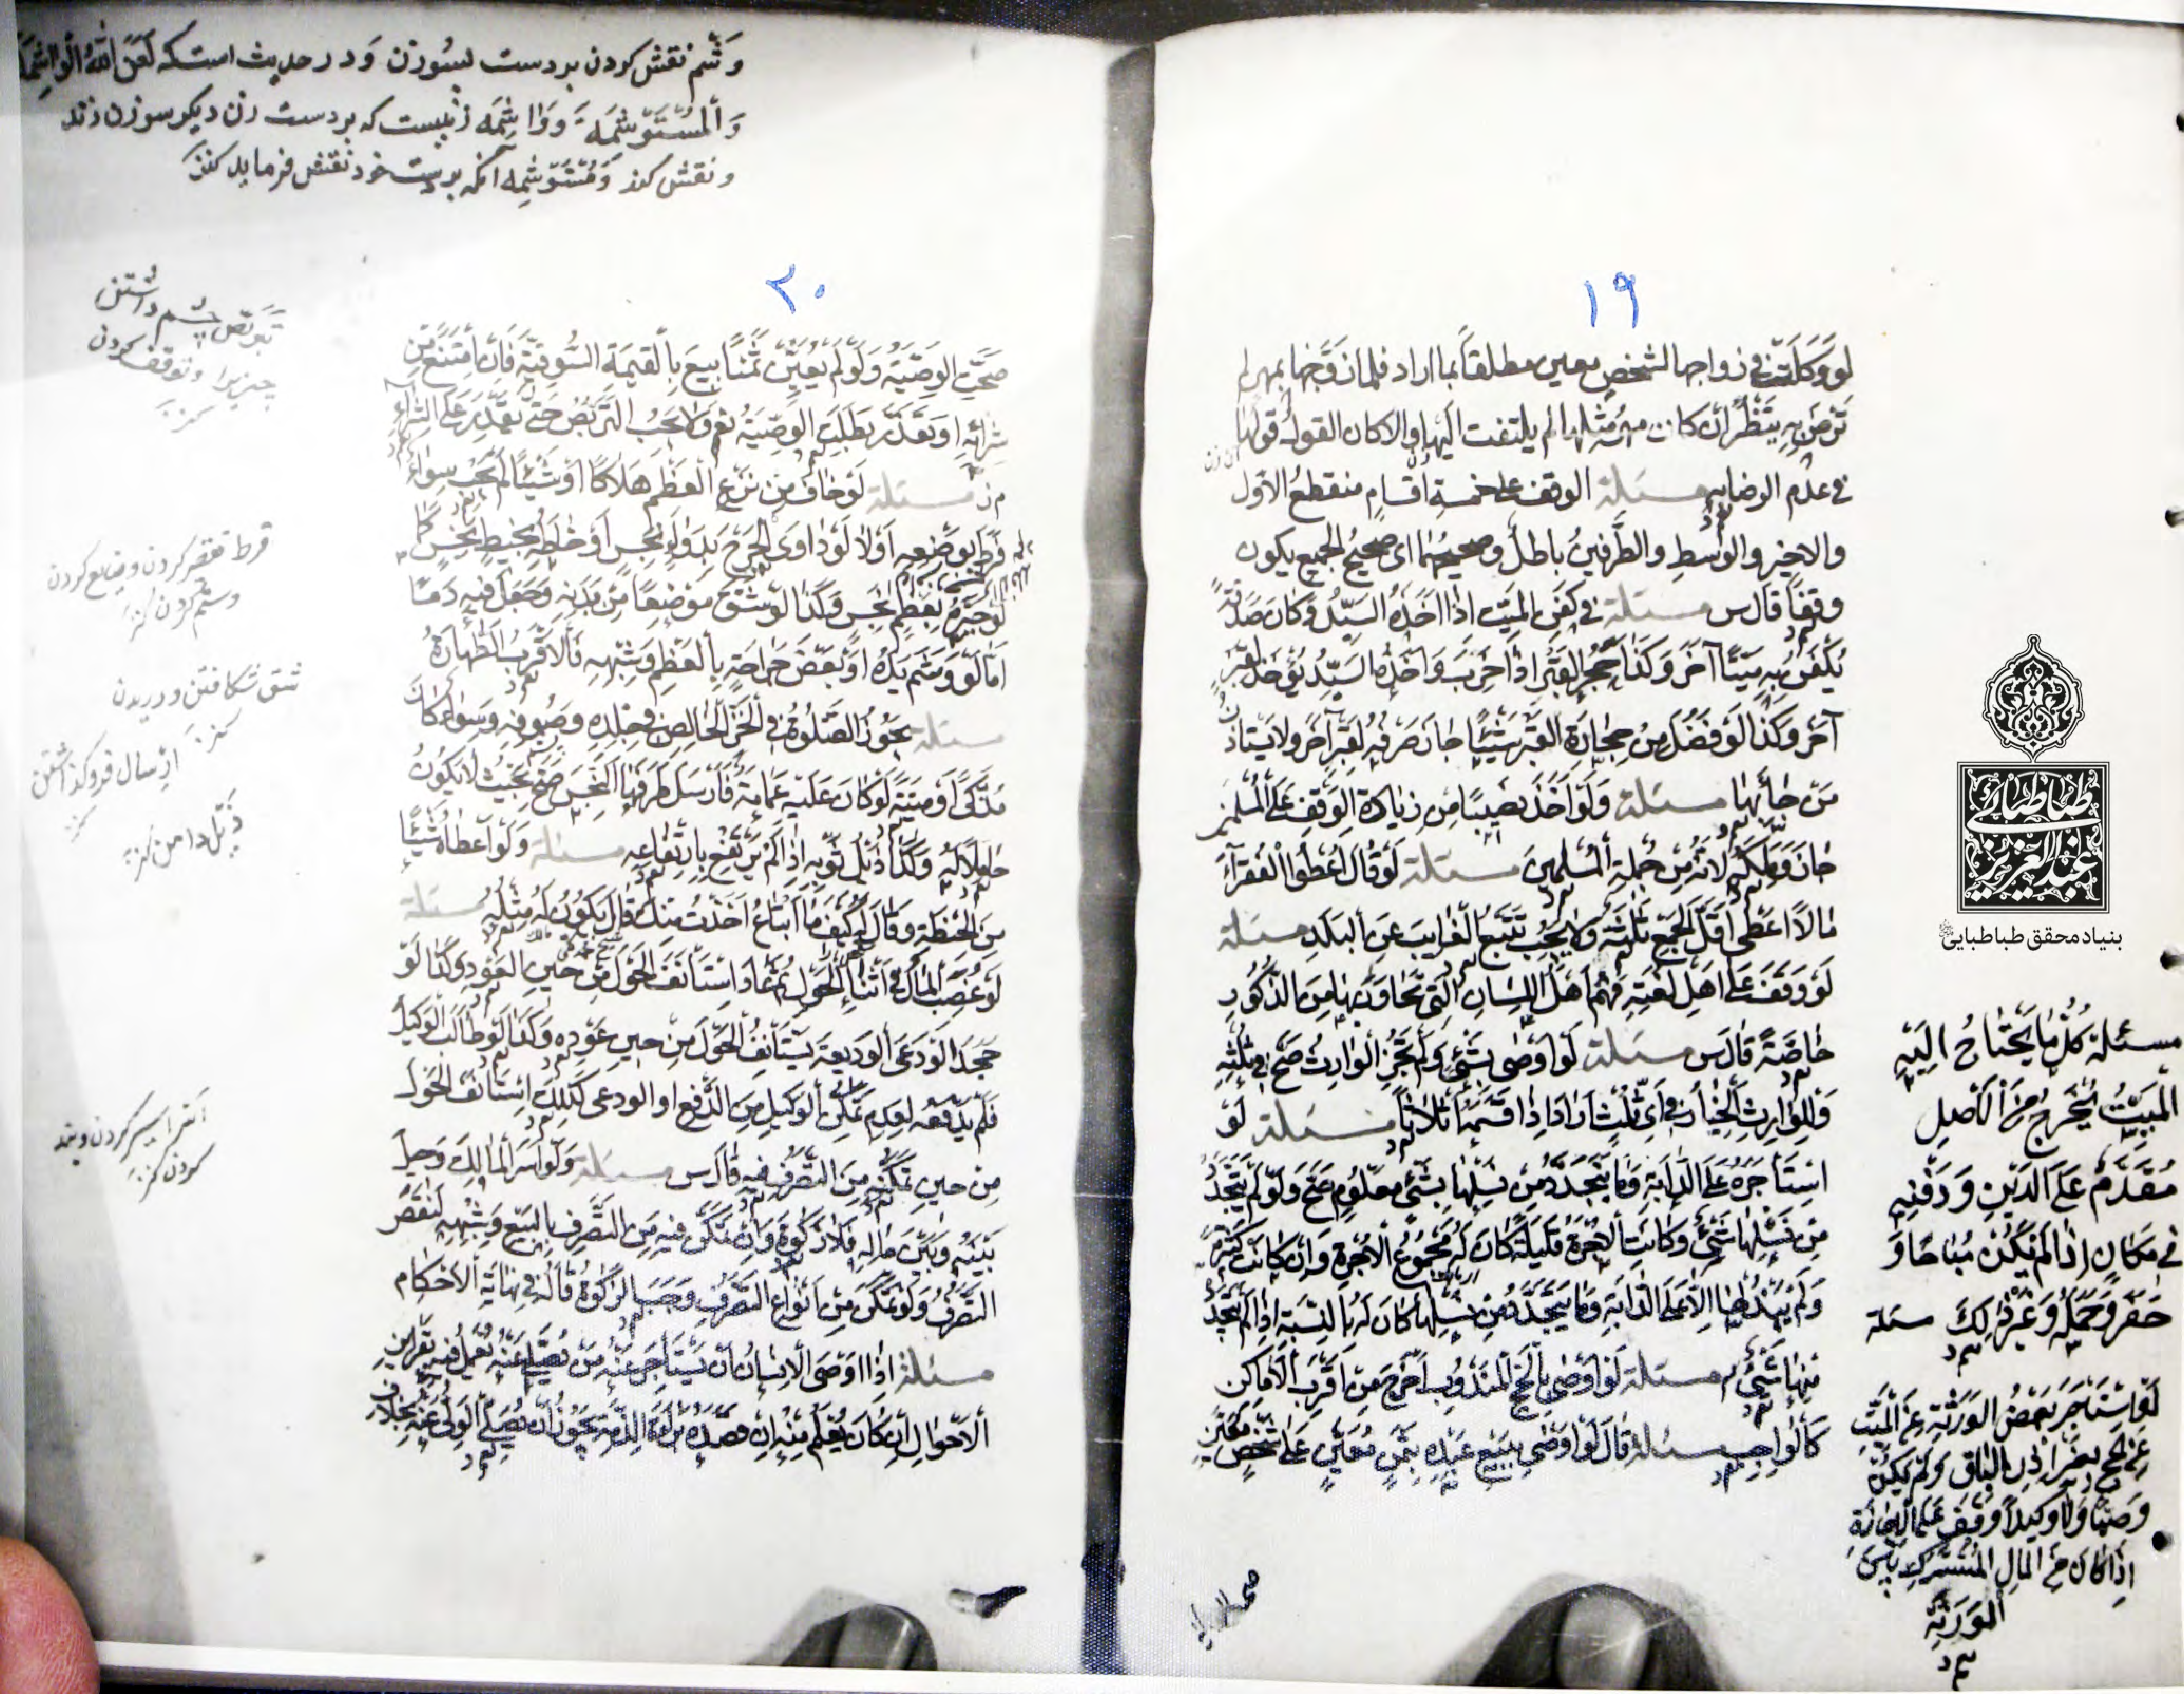 ١٩
لَوْ وَكَلَتْ فی زواجها لشخصٍ معینٍ مطلقاً بما اراد فلما زَوَّجَها بمهرٍ لم
تَرْضَ بِهِ یَنْظُرُ اِنْ كانَ مَهْرُ مِثْلِها لم یلتفت اِلَیها و الا كان القولُ قولُها
فی عدم الرضا به مسئلة الوقف علی خمسةِ اقسامٍ منقطعُ الاوّل
والاخیرِ والوسطِ والطَّرفینِ باطلٌ وصحیحُهُما ای صحیحُ الجمیع یكون
وقفاً قال س مسئلة فی كَفَنِ المیّتِ اذا اَخَذَهُ السَیْلُ وكان صَدَقَةً
یُكَفَّنُ بِهِ مَیِّتاً آخَرَ وكذا حَجَرُ القَبْرِ اِذا خَرِبَ وَاَخَذَهُ السَیْلُ یُؤخَذُ لِقبرٍ
آخَرَ وكذا لَوْ فَضُلَ مِنْ حِجارَةِ القبرِ شَیْئاً جازَ صَرْفُهُ لِقَبْرٍ آخَرَ ولا یَستَأذِنُ
مَنْ جاءَ بِها مسئلة وَلَوْ اَخَذَ نَصیباً مِنْ زیادَةِ الوَقْفِ عَلَی المُسْلِمینَ
جازَ وَمَلَكَهُ لِاَنَّهُ مِنْ جُملةِ المُسلمینَ مسئلة لَوْ قالَ اَعْطُوا الفُقَراءَ
مالاً اَعْطی اَقَلَّ الجَمْعِ ثلثةً ولا یَجِبُ تَتَبُّعُ الغَرایبِ عَنِ البَلَدِ مسئلة
لَوْ وَقَفَ عَلی اَهْلِ لُغَتِهِ فَهُمْ اَهْلُ اللِّسانِ الَّتی یَتَحاوَرُونَ بِها مِنَ الذُّكُورِ
خاصَّةً قالَ س مسئلة لَوْ اَوْصی بِشَیْءٍ وَلَمْ یُجِزِ الوارِثُ صَحَّ فی ثُلْثِهِ
وَلِلوارِثِ الْخِیارُ فی اَیِّ ثُلْثٍ اَرادَ اِذا قَسَمَهُ اَثلاثاً مسئلة لَوْ
اسْتَاْجَرَهُ عَلَی الدّابَةِ وَما یَتَجَدَّدُ مِنْ نَسْلِها بِشَیْءٍ مَعْلُومٍ صَحَّ وَلَوْ لَمْ یَتَجَدَّدْ
مِنْ نَسْلِها شَیْءٌ وَكانَتِ الاُجْرَةُ قَلیلَةً كانَ لَهُ مَجْمُوعُ الاُجْرَةِ وَاِنْ كانَتْ كَثیرَةً
وَلَمْ یَبْذُلْها اِلاّ عَلَی الدّابَةِ وَما یَتَجَدَّدُ مِنْ نَسْلِها كانَ لَهُ بِالنِّسْبَةِ اِذا لَمْ یَتَجَدَّدْ
مِنْها شَیْءٌ مسئلة لَوْ اَوْصی بِالْحَجِّ الْمَنْدُوبِ اُخْرِجَ مِنْ اَقْرَبِ الاَماكِنِ
كَالْواجِبِ مسئلة قالَ لَوْ اَوْصی بِبَیْعِ عَبْدِهِ بِثَمَنٍ مُعَیَّنٍ عَلی شَخْصٍ مُعَیَّنٍ
مسئلة كُلُّ ما یَحْتاجُ اِلَیْهِ
الْمَیِّتُ یُخْرَجُ مِنَ الْاَصْلِ
مُقَدَّمٌ عَلَی الدَّیْنِ وَدَفْنِهِ
فی مَكانٍ اِذا لَمْ یَكُنْ مُباحاً وَ
حَفْرٍ وَحَمْلِهِ وَغَیْرِ ذلِكَ مسئلة
لَوِ اسْتَأجَرَ بَعْضُ الوَرَثَةِ عَنِ الْمَیِّتِ
عَنِ الحَجِّ بِغَیْرِ اِذْنِ الباقی وَلَمْ یَكُنْ
وَصِیّاً وَلا وَكیلاً وُقِفَ عَلَی الاِجازَةِ
اِذا كانَ مِنَ المالِ المُشْتَرَكِ بَیْنَ
الْوَرَثَةِ
طباطبائی
عبدالعزیز
بنیاد محقق طباطبایی
وَشْم نقش كردن بر دست بسوزن وَ در حدیث است كه لَعَنَ اللهُ الْواشِمَةَ
وَالْمُسْتَوْشِمَةَ وَواشِمَه زنیست كه بر دست زن دیكر سوزن زند
و نقش كند وَمُسْتَوْشِمَه آنكه بر دست خود نقش فرماید كنز
٢٠
صَحَّتِ الوَصِیَّةُ وَلَوْ لَمْ یُعَیِّنْ ثَمَناً بیعَ بِالْقیمَةِ السُّوقِیَّةِ فَاِنِ امْتَنَعَ مِنْ
شِرائِهِ اَوْ تَعَذَّرَ بَطَلَتِ الوَصِیَّةُ وَلا یَجِبُ التَّرَبُّصُ حَتّی یَقْدِرَ عَلَی الشِّراءِ
مسئلة لَوْ خافَ مِنْ نَزْعِ الْعَظْمِ هَلاكاً اَوْ شَیْناً لَمْ یَجِبْ سواءٌ
فَرَّطَ بِوَضْعِهِ اَوْ لا لَوْ داوَی الجَرْحَ بِدَواءٍ نَجِسٍ اَوْ خاطَهُ بِخَیْطٍ نَجِسٍ كَما
لَوْ جَبَرَهُ بِعَظْمٍ نَجِسٍ وَكَذا لَوْ شَقَّ مَوْضِعاً مِنْ بَدَنِهِ وَجَعَلَ فیهِ دَماً
اَمّا لَوْ وَشَمَ یَدَهُ اَوْ بَعْضَ جَراحَةٍ بِالْعَظْمِ وَشِبْهِهِ فَالاَقْرَبُ الطَّهارَةُ
مسئلة یَجُوزُ الصَّلوةُ فی الخَزِّ الخالِصِ فی جِلْدِهِ وَصُوفِهِ وَسَواءٌ كانَ
مُذَكّیً اَوْ مَیْتَةً لَوْ كانَ عَلَیْهِ عَمامَةٌ فَاَرْسَلَ طَرَفَها النَّجِسَ صَحَّ بِحَیْثُ لا یَكُونُ
حامِلاً لَهُ وَكَذا ذَیْلُ ثَوْبِهِ اِذا لَمْ یَرْتَفِعْ بِارْتِفاعِهِ مسئلة وَلَوْ اَعْطاهُ شَیْئاً
مِنَ الحِنْطَةِ وَقالَ لَهُ كَیْفَ ما اَبْتاعُ اَخَذْتُ مِنْكَ قالَ یَكُونُ لَهُ مِثْلُهُ مسئلة
لَوْ غُصِبَ المالُ فی اَثْناءِ الْحَوْلِ ثُمَّ عادَ اسْتَأنَفَ الحَوْلَ مِنْ حینِ العَوْدِ وَكَذا لَوْ
جَحَدَ الوَدَعی الْوَدیعَةَ یَسْتَأنِفُ الحَوْلَ مِنْ حینِ عَوْدِهِ وَكَذا لَوْ طالَبَ الْوَكیلَ
فَلَمْ یَدْفَعْهُ لِعَدَمِ تَمَكُّنِ الْوَكیلِ مِنَ الدَّفْعِ اَوِ الودعی كَذلِكَ اِسْتَأنَفَ الحَوْلَ
مِنْ حینِ تَمَكُّنِهِ مِنَ التَّصَرُّفِ فیهِ قالَ س مسئلة وَلَوْ اُسِرَ الْمالِكُ وَحیلَ
بَیْنَهُ وَبَیْنَ مالِهِ فَلا زَكوةَ وَاِنْ تَمَكَّنَ فیهِ مِنَ التَّصَرُّفِ بِالبَیْعِ وَشِبْهِهِ لِنَقْصِ
التَّصَرُّفِ وَلَوْ تَمَكَّنَ مِنْ اَنْواعِ التَّصَرُّفِ وَجَبَ الزَّكوةُ قالَهُ فی نِهایَةِ الاَحْكامِ
مسئلة اِذا اَوْصَی الاِنْسانُ اَنْ یَسْتَأجِرَ عَنْهُ مَنْ یُصَلّی عَنْهُ یُعْمَلُ فیهِ بِقَراینِ
الاَحْوالِ اِنْ كانَ یُعْلَمُ مِنْهُ اِنْ قَصْدُهُ بَراءَةُ الذِّمَّةِ یَجُوزُ اَنْ یُصَلِّیَ الوَلِیُّ عَنْهُ بِخِلافِ
تَرَبُّص چشم داشتن
چیزیرا و توقف كردن
كنز
فرط تقصیر كردن و ضایع كردن
وستم كردن كنز
شق شكافتن و دریدن
كنز
اِرسال فروكذاشتن
كنز
ذَیْل دامن كنز
اسر اسیر كردن و بند
كردن كنز